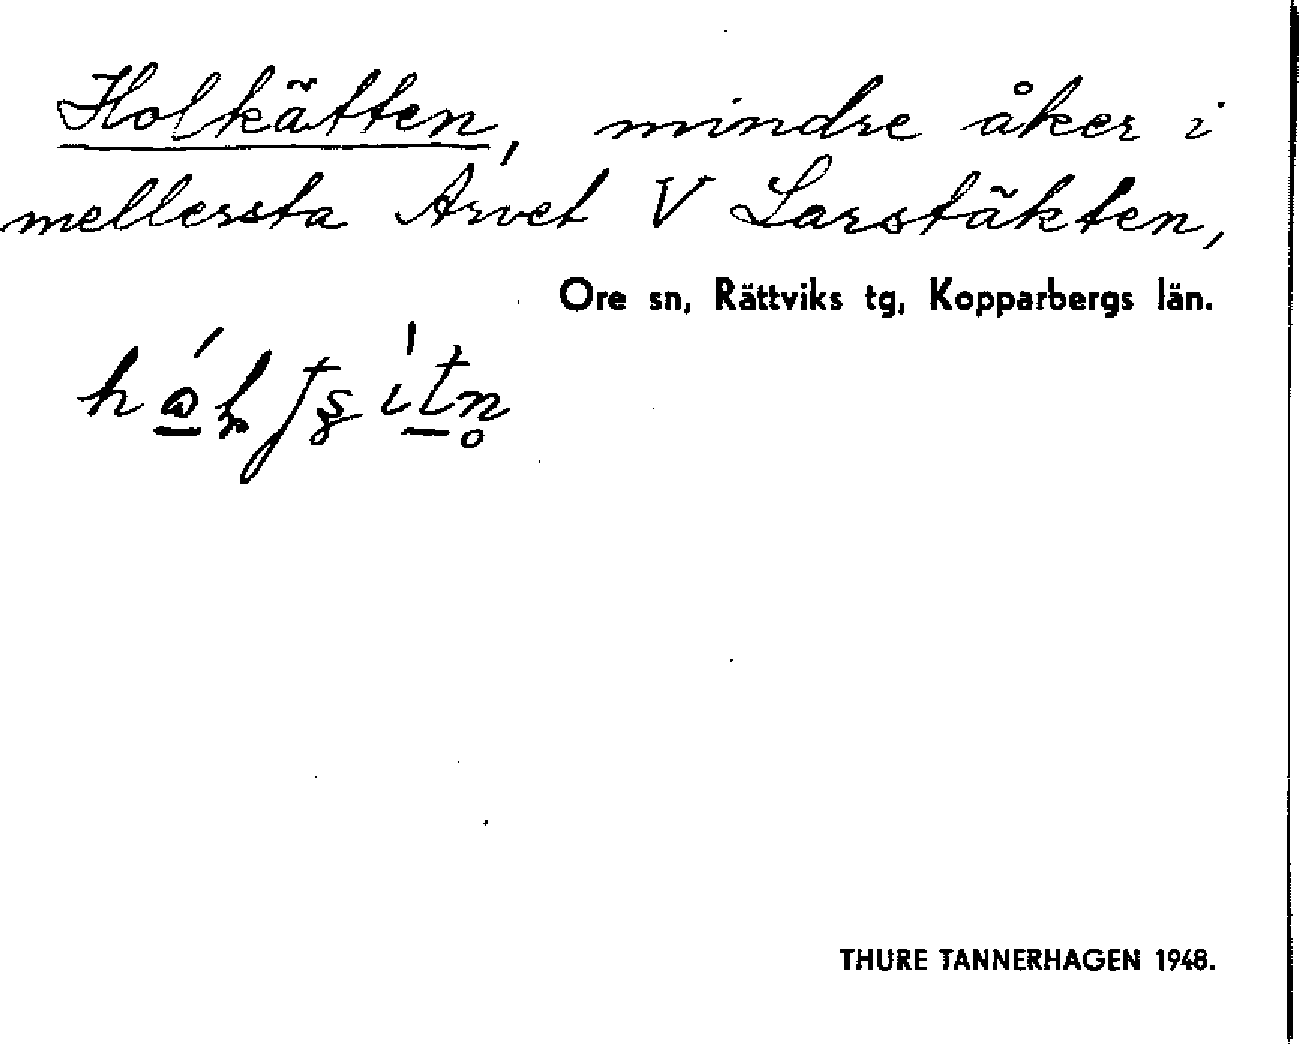 Holkätten, mindre åker i
mellersta Arvet V Larstäkten,
Ore sn, Rättviks tg, Kopparbergs län.
THURE TANNERHAGEN 1948.